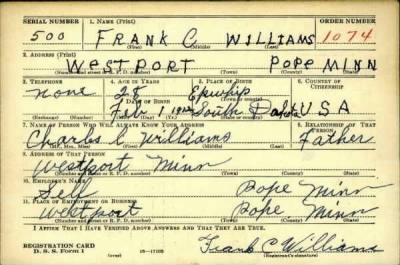 SERIAL NUMBER 1. NAME (Print) ORDER NUMBER
500 FRANK C WILLIAMS 1074
(First) (Middle) (Last)
2. ADDRESS (Print)
WESTPORT POPE MINN
(Town) (County) (State)
3. TELEPHONE 4. AGE IN YEARS 5. PLACE OF BIRTH 6. COUNTRY OF CITIZENSHIP
none 28 Epiphip
DATE OF BIRTH
Feb 1 1912 South Dakota USA
(Mo.) (Day) (Yr.) (State or country)
7. NAME OF PERSON WHO WILL ALWAYS KNOW YOUR ADDRESS 8. RELATIONSHIP OF THAT PERSON
Charles R Williams Father
(Mr., Mrs., Miss) (First) (Middle) (Last)
9. ADDRESS OF THAT PERSON
Westport Minn
(Number and street or R. F. D. number) (Town) (County) (State)
10. EMPLOYER'S NAME
Self Pope Minn
11. PLACE OF EMPLOYMENT OR BUSINESS
Westport Pope Minn
(Number and street or R. F. D. number) (Town) (County) (State)
I AFFIRM THAT I HAVE VERIFIED ABOVE ANSWERS AND THAT THEY ARE TRUE.
REGISTRATION CARD
D. S. S. Form 1 (over) 16-17105 Frank C Williams
(Registrant's signature)